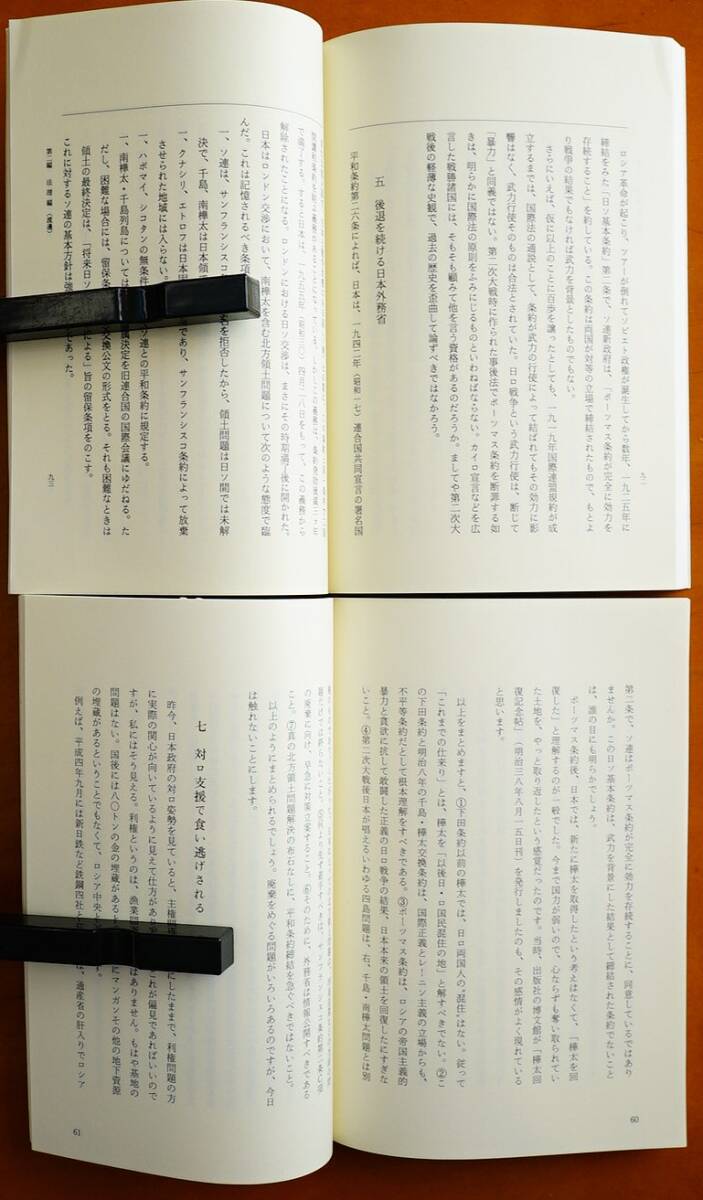 九二
ロシア革命が起こり、ツァーが倒れてソビエト政権が誕生してから数年、一九二五年に
締結をみた「日ソ基本条約」第二条で、ソ連新政府は、「ポーツマス条約が完全に効力を
存続すること」を約している。この条約は両国が対等の立場で締結されたもので、もとよ
り戦争の結果でもなければ武力を背景としたものでもない。
さらにいえば、仮に以上のことに百歩を譲ったとしても、一九一九年国際連盟規約が成
立するまでは、国際法の通説として、条約が武力の行使によって結ばれてもその効力に影
響はなく、武力行使そのものは合法とされていた。日ロ戦争という武力行使は、断じて
「暴力」と同義ではない。第二次大戦時に作られた事後法でポーツマス条約を断罪する如
きは、明らかに国際法の原則をふみにじるものといわねばならない。カイロ宣言などを広
言した戦勝諸国には、そもそも顧みて他を言う資格があるのだろうか。ましてや第二次大
戦後の軽薄な史観で、過去の歴史を歪曲して論ずべきではなかろう。
五 後退を続ける日本外務省
平和条約第二六条によれば、日本は、一九四二年(昭和一七)連合国共同宣言の署名国
で満了する。すると日本は、一九五五年(昭和三〇)四月二八日をもって、この義務から
解除されたことになる。ロンドンにおける日ソ交渉は、まさにその時期満了後に開かれた。
日本はロンドン交渉において、南樺太を含む北方領土問題について次のような態度で臨
んだ。これは記憶されるべき条項
一、ソ連は、サンフランシスコ
を拒否したから、領土問題は日ソ間では未解
決で、千島、南樺太は日本領で
一、クナシリ、エトロフは日本固
であり、サンフランシスコ条約によって放棄
させられた地域には入らない。
一、ハボマイ、シコタンの無条件
ソ連との平和条約に規定する。
一、南樺太・千島列島については
属決定を旧連合国の国際会議にゆだねる。た
だし、困難な場合には、留保条
交換公文の形式をとる。それも困難なときは
領土の最終決定は、「将来日ソ
による」旨の留保条項をのこす。
これに対するソ連の基本方針は強
であった。
第二編 法理編
九三
第二条で、ソ連はポーツマス条約が完全に効力を存続することに、同意しているではあり
ませんか。この日ソ基本条約は、武力を背景にした結果として締結された条約でないこと
は、誰の目にも明らかでしょう。
ポーツマス条約後、日本では、新たに樺太を取得したという考えはなくて、「樺太を回
復した」と理解するのが一般でした。今まで国力が弱いので、心ならずも奪い取られてい
た土地を、やっと取り返したという感覚だったのです。当時、出版社の博文館が「樺太回
復記念帖」(明治三八年八月一五日刊)を発行しましたのも、その感情がよく現れている
と思います。
以上をまとめますと、①下田条約以前の樺太では、日ロ両国人の"混住"はない。従って
「これまでの仕来り」とは、樺太を「以後日・ロ国民混住の地」と解すべきでない。②こ
の下田条約と明治八年の千島・樺太交換条約は、国際正義とレーニン主義の立場からも、
不平等条約だとして根本理解をすべきである。③ポーツマス条約は、ロシアの帝国主義的
暴力と貪欲に抗して敢闘した正義の日ロ戦争の結果、日本本来の領土を回復したにすぎな
いこと。④第二次大戦後日本が唱えるいわゆる四島問題は、右、千島・南樺太問題とは別
60
の廃棄に向け、早急に対策立案すること。⑥そのために、外務省は情報公開すべきである
こと。⑦真の北方領土問題解決の布石なしに、平和条約締結を急ぐべきではないこと。
以上のようにまとめられるでしょう。廃棄をめぐる問題がいろいろあるのですが、今日
は触れないことにします。
七 対ロ支援で食い逃げされる
昨今、日本政府の対ロ姿勢を見ていると、主権問題
にしたままで、利権問題の方
に実際の関心が向いているように見えて仕方があ
これが偏見であればいいので
すが、私にはそう見える。利権というのは、漁業問
はありません。もはや基地の
問題はない。国後には八〇トンの金の埋蔵がある
にマンガンその他の地下資源
の埋蔵があるということでもなくて、ロシア中央と
す。
例えば、平成四年九月には新日鉄など鉄鋼四社と
は、通産省の肝入りでロシア
61